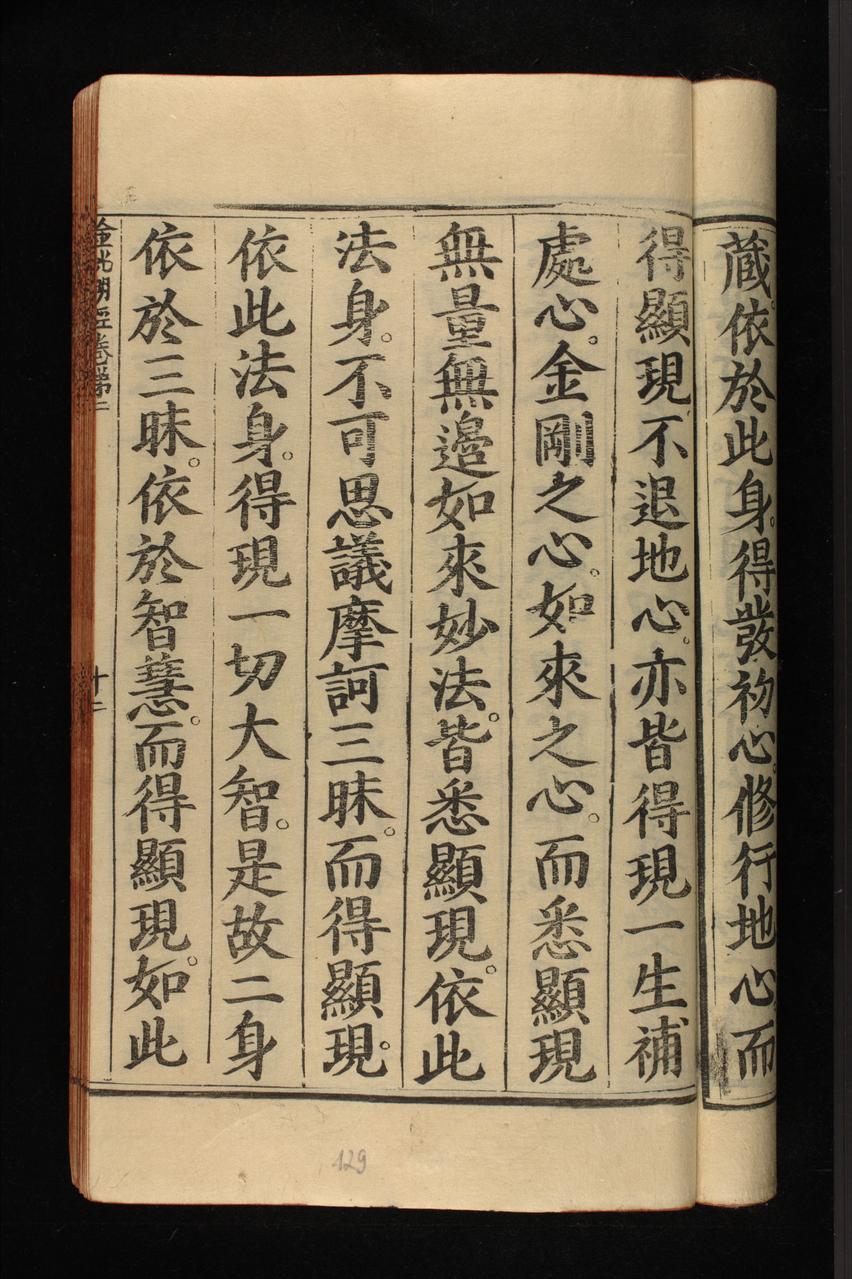 蔵。依於此身。得發初心。修行地心而
得顯現。不退地心。亦皆得現一生補
處心。金剛之心。如來之心。而悉顯現
無量無邊如來妙法。皆悉顯現。依此
法身。不可思議摩訶三昧。而得顯現。
依此法身。得現一切大智。是故二身
依於三昧。依於智慧。而得顯現。如此
金光明經卷第二
十二
129